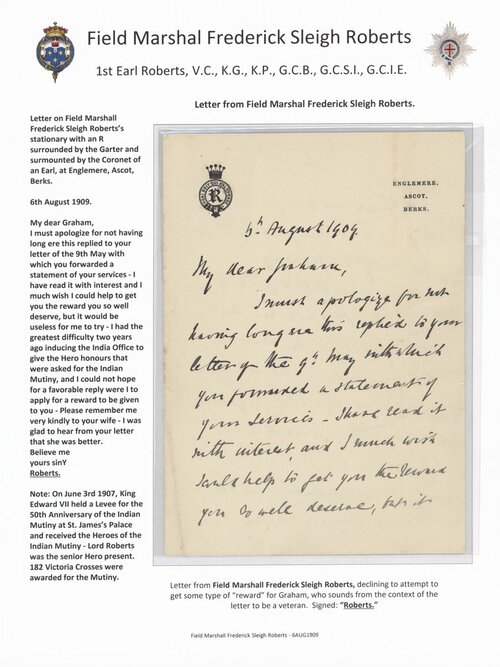 Field Marshal Frederick Sleigh Roberts
1st Earl Roberts, V.C., K.G., K.P., G.C.B., G.C.S.I., G.C.I.E.
Letter from Field Marshal Frederick Sleigh Roberts.
Letter on Field Marshall
Frederick Sleigh Roberts's
stationary with an R
surrounded by the Garter and
surmounted by the Coronet of
an Earl, at Englemere, Ascot,
Berks.
6th August 1909.
My dear Graham,
I must apologize for not having
long ere this replied to your
letter of the 9th May with
which you forwarded a
statement of your services - I
have read it with interest and I
much wish I could help to get
you the reward you so well
deserve, but it would be
useless for me to try - I had the
greatest difficulty two years
ago inducing the India Office to
give the Hero honours that
were asked for the Indian
Mutiny, and I could not hope
for a favorable reply were I to
apply for a reward to be given
to you - Please remember me
very kindly to your wife - I was
glad to hear from your letter
that she was better.
Believe me
yours sinY
Roberts.
Note: On June 3rd 1907, King
Edward VII held a Levee for the
50th Anniversary of the Indian
Mutiny at St. James's Palace
and received the Heroes of the
Indian Mutiny - Lord Roberts
was the senior Hero present.
182 Victoria Crosses were
awarded for the Mutiny.
R
ENGLEMERE,
ASCOT,
BERKS.
6th August 1909
My dear Graham,
I must apologize for not
having long ere this replied to your
letter of the 9th May with which
you forwarded a statement of
your services - I have read it
with interest and I much wish
I could help to get you the reward
you so well deserve, but it
Letter from Field Marshall Frederick Sleigh Roberts, declining to attempt to
get some type of "reward" for Graham, who sounds from the context of the
letter to be a veteran. Signed: "Roberts."
Field Marshal Frederick Sleigh Roberts - 6AUG1909